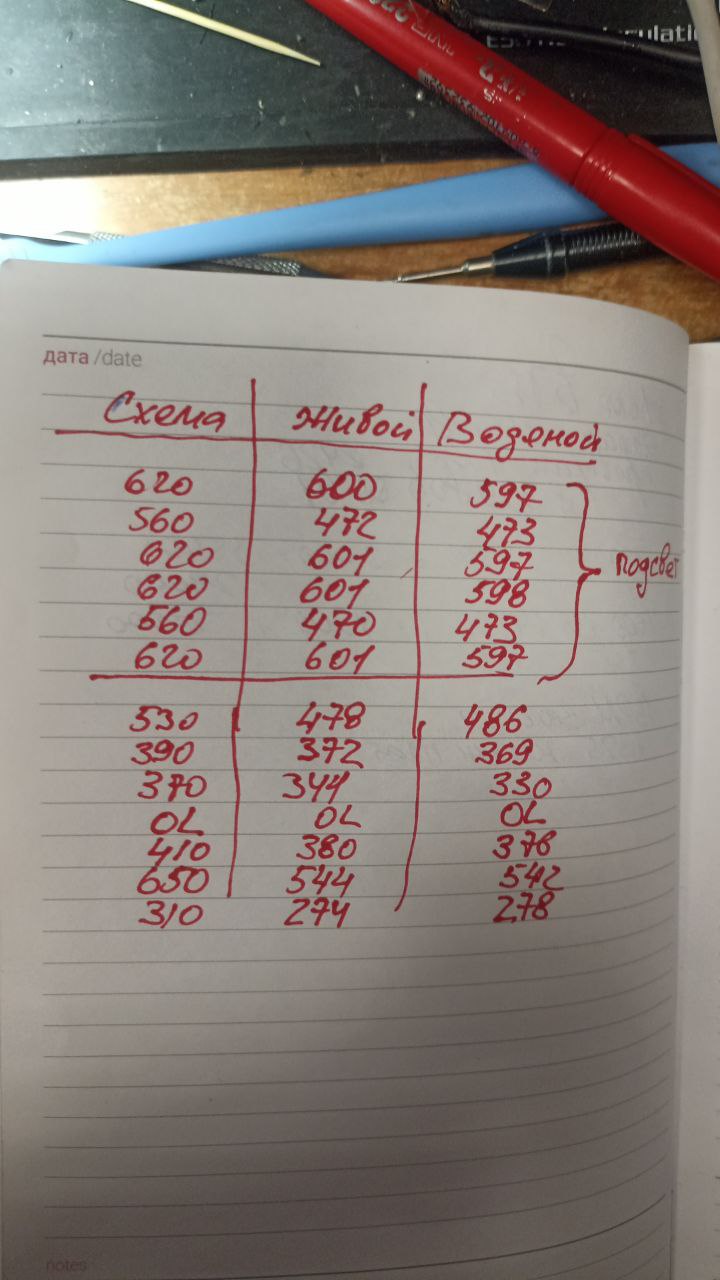 дата /date
Схема Живой Водяной
620 600 597
560 472 473
620 601 597
620 601 598 подсвет
560 470 473
620 601 597
530 478 486
390 372 369
370 344 330
OL OL OL
410 380 376
650 544 542
310 274 278
notes